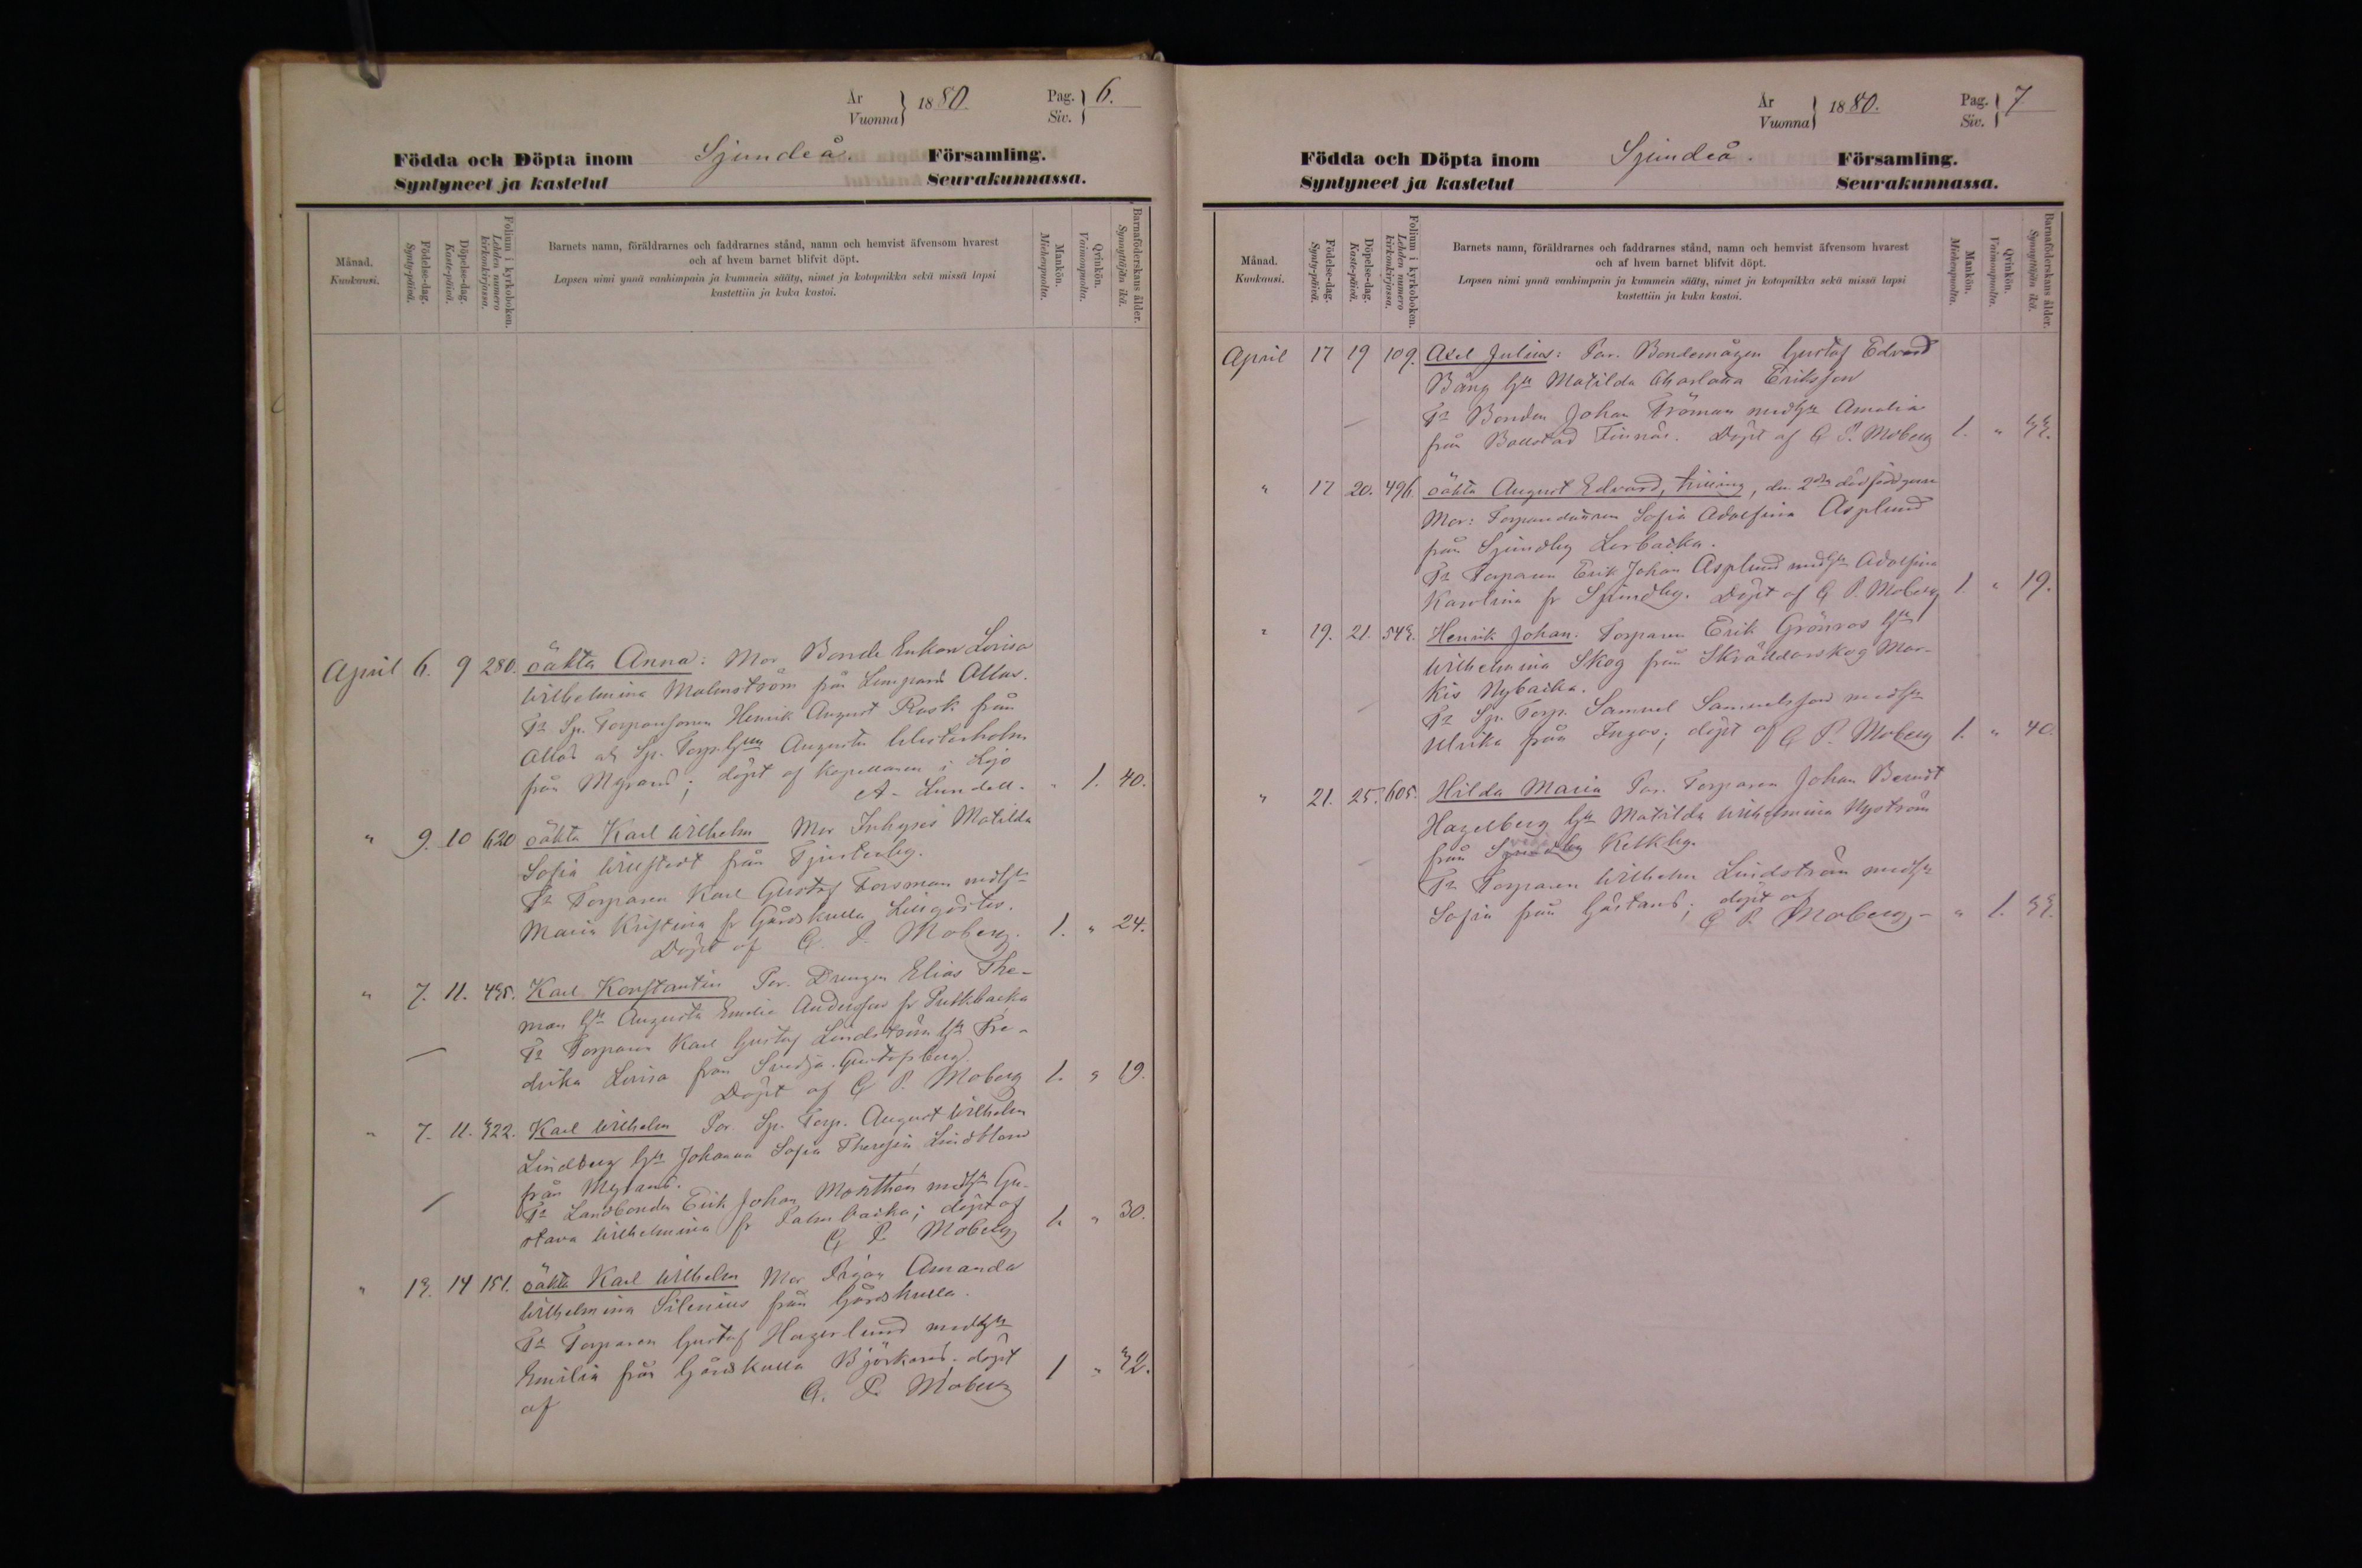 År
Vuonna } 1880.
Pag.
Siv. } 6.
Födda och Döpta inom Sjundeå. Församling.
Syntyneet ja kastetut Seurakunnassa.
Månad.
Kuukausi.
Födelse-dag.
Synty-päivä.
Döpelse-dag.
Kaste-päivä.
Folium i kyrkoboken.
Lehden numero kirkonkirjassa.
Barnets namn, föräldrarnes och faddrarnes stånd, namn och hemvist äfvensom hvarest
och af hvem barnet blifvit döpt.
Lapsen nimi ynnä vanhimpain ja kummein sääty, nimet ja kotopaikka sekä missä lapsi
kastettiin ja kuka kastoi.
Mankön.
Miehenpuolta.
Qvinkön.
Vaimonpuolta.
Barnaföderskans ålder.
Synnyttäjän ikä.
April 6. 9 280. oäkta Anna: Mor Bonde Enkan Lovisa
Wilhelmina Malmström från Lempans Allas.
Fr Sp. Torparsonen Henrik August Rosk från
Allas och Sp. Torp. Augusta Westerholm
från Myrans; döpt af Kapellanen i Lojo
A. Lundell. " 1. 40.
" 9. 10 620 oäkta Karl Wilhelm Mor Inhyses Matilda
Sofia från Tjusterby.
Fr Torparen Karl Gustaf Forsman med Hu
Maria Kristina fr Gårdskulla Lillgårds.
Döpt af G. P. Moberg. 1. " 24.
" 7. 11. 435. Karl Konstantin För. Drängen Elias The-
man Hu Augusta Emilia Andersson fr Puttbacka
Fr Torparen Karl Gustaf Lindström Hu Fre-
drika Lovisa från Svidja Gustafsberg.
Döpt af G P. Moberg 1. " 19.
" 7. 11. 322. Karl Wilhelm För. Sp. Torp. August Wilhelm
Lindberg Hu Johanna Sofia Theresia Lindblom
från Myrans.
Fr Landbonden Erik Johan Morthén med Hu Gu-
stava Wilhelmina fr Palmbacka; döpt af
G P. Moberg 1. " 30.
" 13. 14 151. oäkta Karl Wilhelm Mor Pigan Amanda
Wilhelmina Silenius från Gårdskulla.
Fr Torparen Gustaf Hagerlund med Hu
Emilia från Gårdskulla Björkars. döpt
af G. P. Moberg 1 " 32.
År
Vuonna } 1880.
Pag.
Siv. } 7
Födda och Döpta inom Sjundeå. Församling.
Syntyneet ja kastetut Seurakunnassa.
Månad.
Kuukausi.
Födelse-dag.
Synty-päivä.
Döpelse-dag.
Kaste-päivä.
Folium i kyrkoboken.
Lehden numero kirkonkirjassa.
Barnets namn, föräldrarnes och faddrarnes stånd, namn och hemvist äfvensom hvarest
och af hvem barnet blifvit döpt.
Lapsen nimi ynnä vanhimpain ja kummein sääty, nimet ja kotopaikka sekä missä lapsi
kastettiin ja kuka kastoi.
Mankön.
Miehenpuolta.
Qvinkön.
Vaimonpuolta.
Barnaföderskans ålder.
Synnyttäjän ikä.
April 17 19 109. Axel Julius: För. Bondemågen Gustaf Edvard
Bäng Hu Matilda Charlotta Eriksson
Fr Bonden Johan Fröman med Hu Amalia
från Bollstad Finnäs. Döpt af G P. Moberg 1. " 33.
" 17 20. 496. oäkta August Edvard, tvilling, den 2dra dödfödd gosse
Mor: Torparedottren Sofia Adolfina Asplund
från Sjundby Lerbacka.
Fr Torparen Erik Johan Asplund med Hu Adolfina
Karolina fr Sjundby. Döpt af G P. Moberg 1 " 19.
" 19. 21. 543. Henrik Johan: Torparen Erik Grönros Hu
Wilhelmina Skog från Skräddarskog Mar-
kis Nybacka.
Fr Sp. Torp. Samuel Samuelsson med Hu
Ulrika från Ingas; döpt af G P. Moberg 1. " 40.
" 21. 25. 605. Hilda Maria För. Torparen Johan Berndt
Hagelberg Hu Matilda Wilhelmina Nyström
från Kelkby.
Fr Torparen Wilhelm Lindström med Hu
Sofia från Gårdans; döpt af
G P. Moberg " 1. 33.